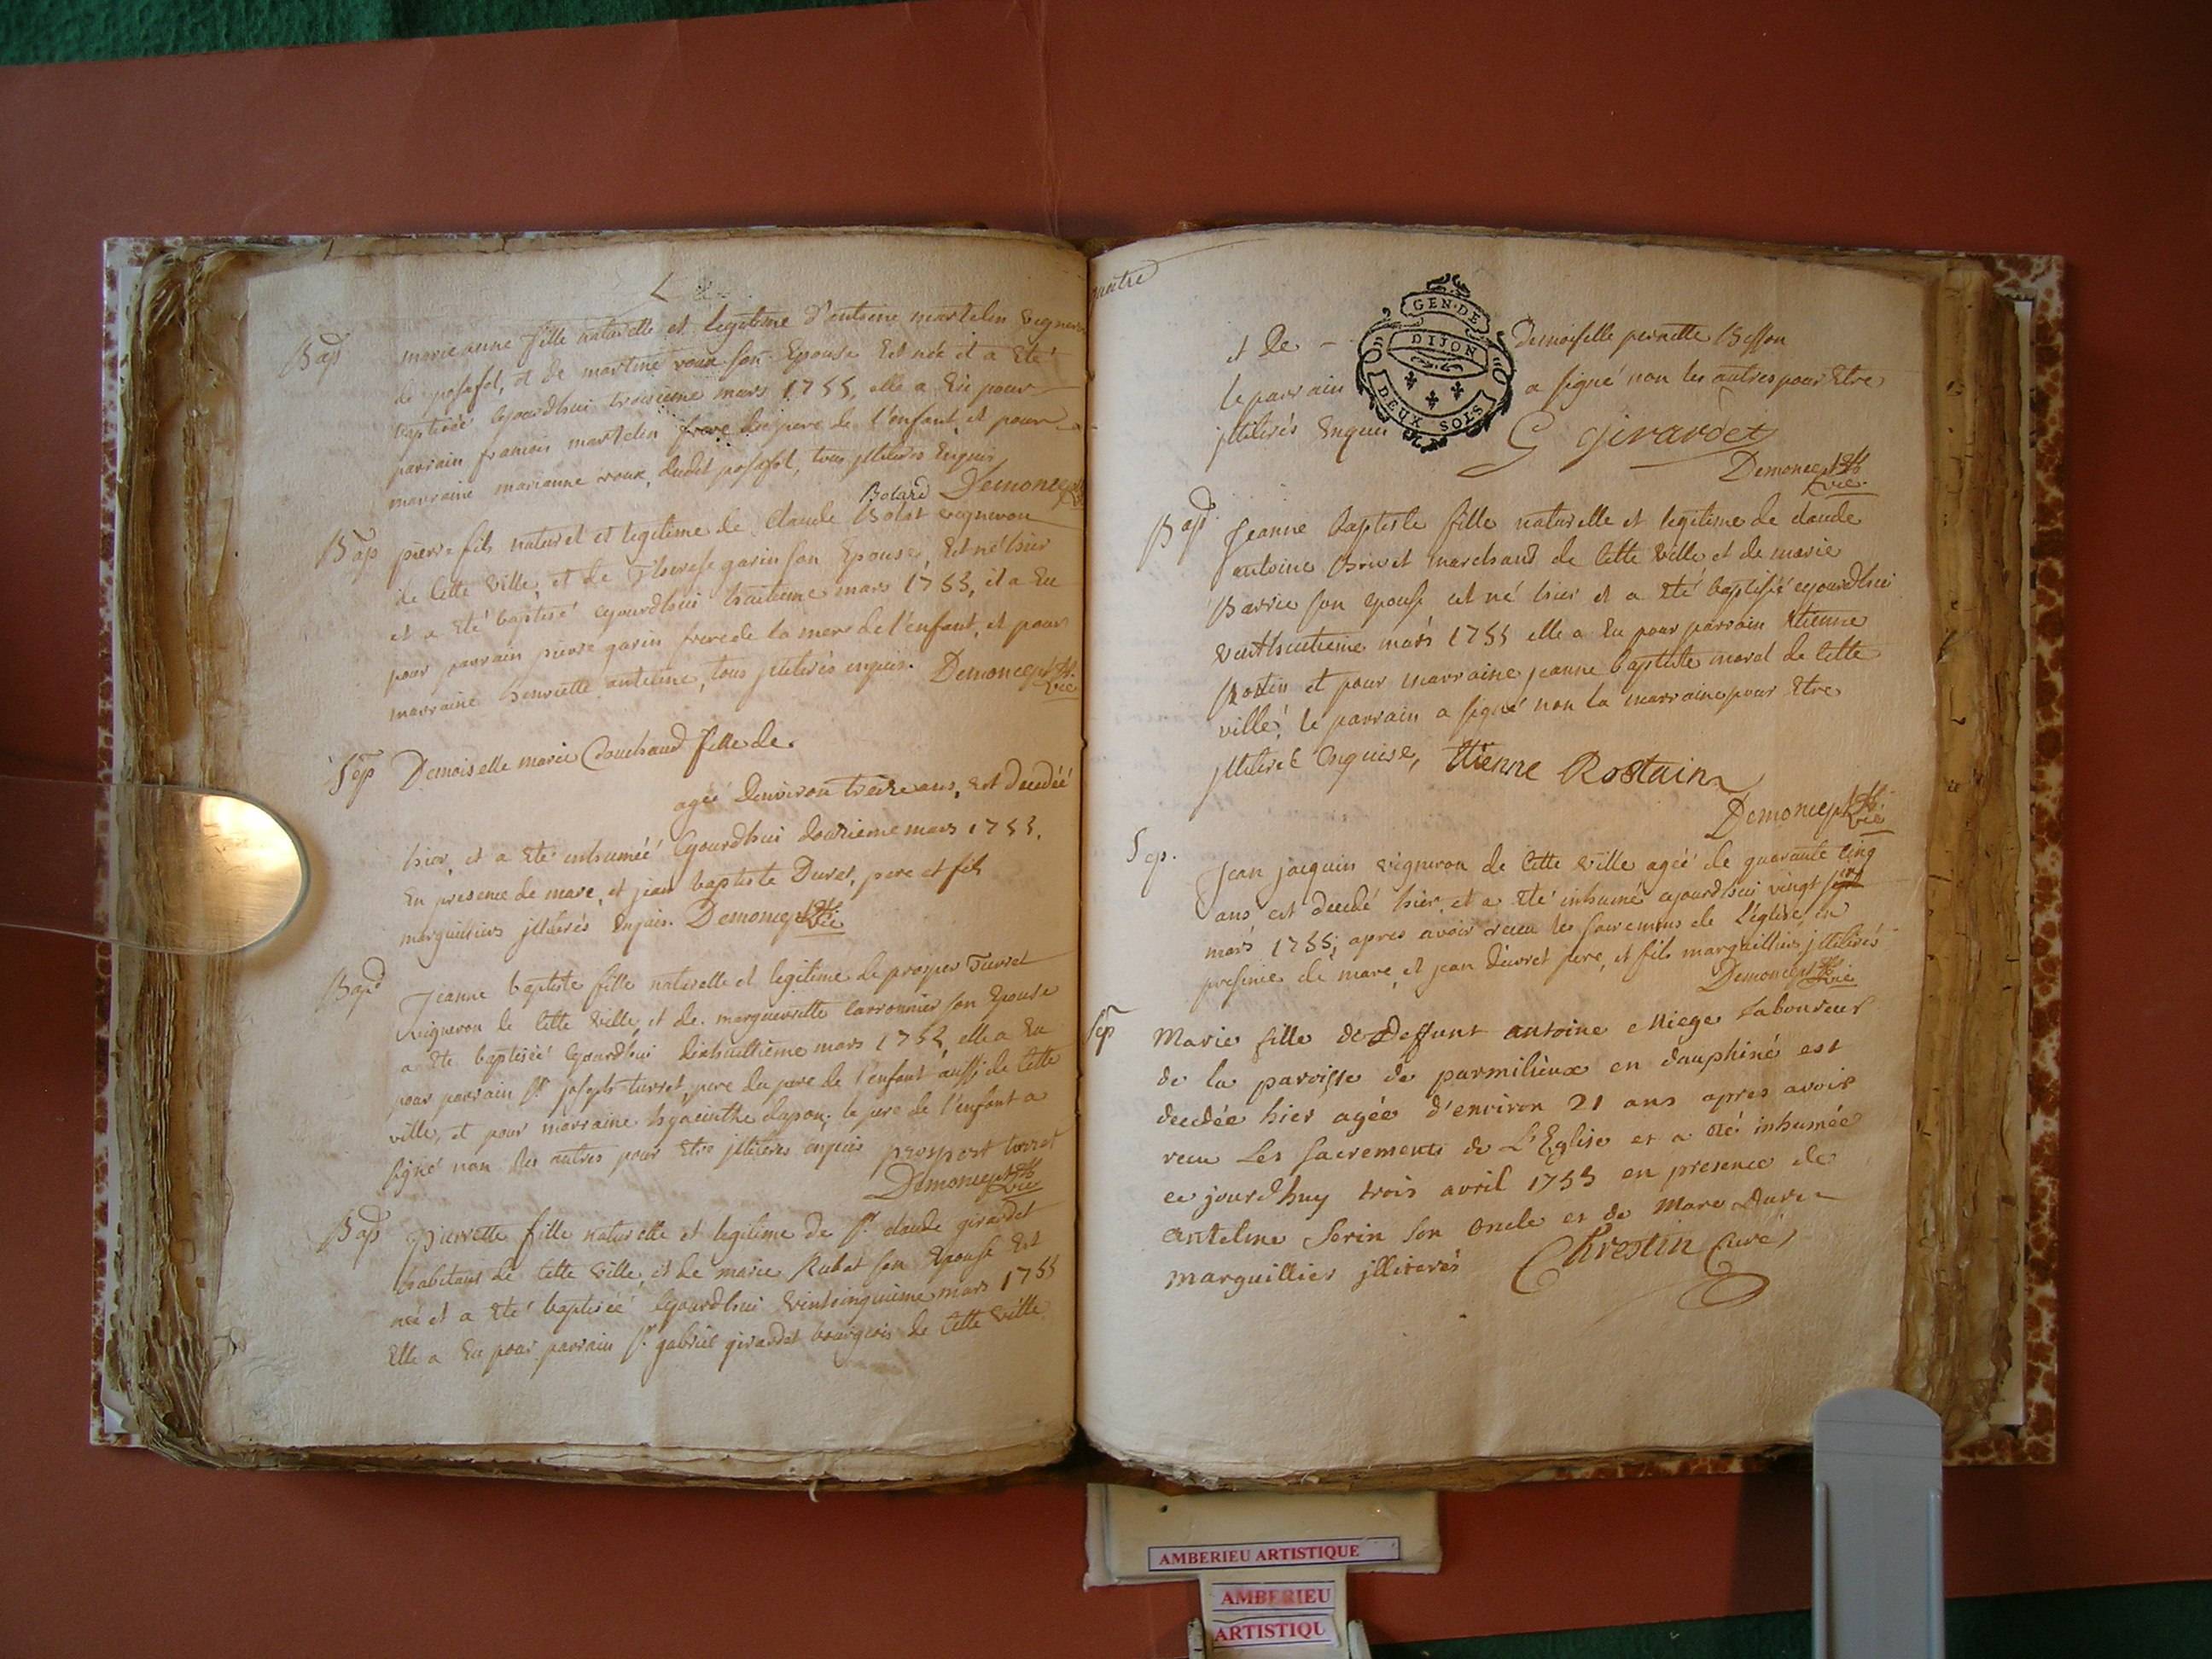 Bap marie anne fille naturelle et legitime d'antoine martelin vigneron
de posafol, et de martine roux son Epouse Est née et a Eté
baptisée cejourdhui troisieme mars 1755, elle a Eu pour
parrain francois martelin frere du pere de l'enfant et pour
marraine marianne roux, dudit posafol, tous jlliterés Enquis
Bolard Demonceptz
Bap pierre fils naturel et legitime de Claude Bolat vigneron
de Cette ville, et de Therese garin son Epouse, Est né hier
et a Eté baptisé cejourdhui huitieme mars 1755, il a Eu
pour parrain pierre garin frere de la mere de l'enfant, et pour
marraine henriette antelme, tous jlliterés enquis. Demonceptz
vic
Sep Demoiselle marie Couchaud fille de
agée Denviron treize ans, est decedée
hier, et a Eté inhumée Cejourdhui douzieme mars 1755.
En presence de marc, et jean baptiste Duret, pere et fils
marguilliers jlliterés enquis. Demonceptz vic
Bap Jeanne baptiste fille naturelle et legitime de prosper Turret
vigneron de Cette ville, et de marguerite carronnier son Epouse
a Eté baptisée Cejourdhui dixhuitième mars 1755, elle a Eu
pour parrain Sr joseph turret, pere du pere de l'enfant aussi de Cette
ville, et pour marraine hyacinthe dapon; le pere de l'enfant a
signé non les autres pour Etre jlliterés enquis prospert turret
Demonceptz
vic
Bap pierrette fille naturelle et legitime de Sr claude girardet
habitant de Cette ville, et de marie Rubat son Epouse Est
née et a Eté baptisée Cejourdhui vintcinquieme mars 1755
Elle a Eu pour parrain Sr gabriel girardet bourgeois de Cette ville
quatre
GEN. DE
DIJON
DEUX SOLS
et De Demoiselle pernette Besson
le parrain a signé non les autres pour Etre
jlliterés Enquis G girardet
Demonceptz
vic.
Bap Jeanne baptiste fille naturelle et legitime de claude
antoine Brivet marchand de Cette ville et de marie
Barrie son epouse est né hier et a Eté baptisée cejourdhui
vinthuitieme mars 1755 elle a Eu pour parrain Etienne
Rostin et pour marraine jeanne baptiste moral de Cette
ville, le parrain a signé non la marraine pour Etre
jlliteré Enquise, Etienne Rostain
Demonceptz
vic
Sep. Jean jacquin vigneron de Cette ville ageé de quarante cinq
ans est decedé hier, et a Eté inhumé cejourdhui vingt
mars 1755; apres avoir receu les sacremens de L'église, en
presence de marc, et jean duret pere, et fils marguilliers jlliterés
Demonceptz vic
Sep Marie fille de Deffunt antoine Miege Laboureur
de la paroisse de parmilieux en dauphiné est
decedée hier agée d'environ 21 ans apres avoir
receu Les sacrements de L'Eglise et a été inhumée
ce jourd'huy trois avril 1755 en presence de
antelme Serin son oncle et de Marc Duret
marguillier jlliterés Chrestin Curé
AMBERIEU ARTISTIQUE
AMBERIEU
ARTISTIQU